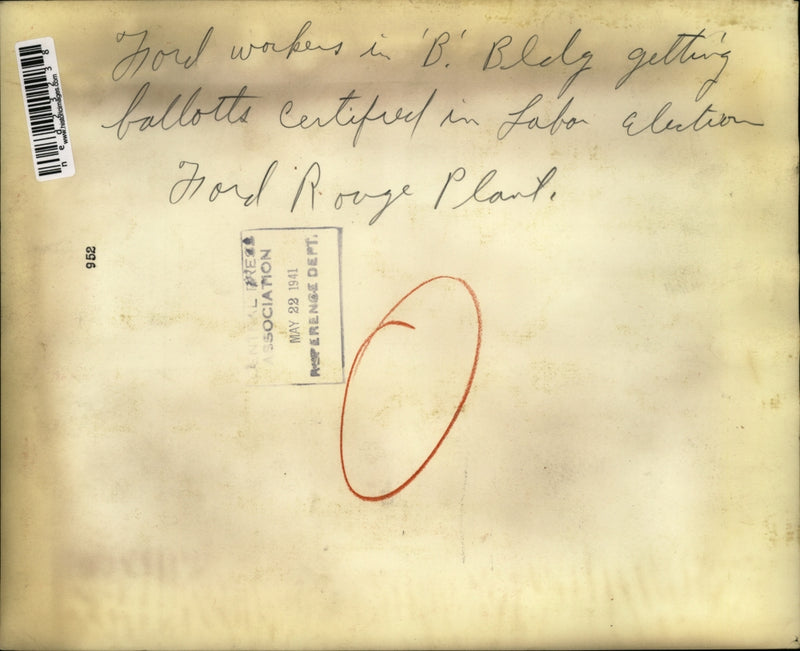 Ford workers in 'B'. Bldg getting
ballotts certified in Labor Election
Ford Rouge Plant.
952
PRESS
ASSOCIATION
MAY 22 1941
REFERENCE DEPT.